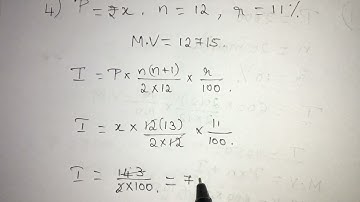 4) P = x. n = 12, r = 11%
M.V = 12715.
I = P × n(n+1)/2×12 × r/100.
I = x × 12(13)/2×12 × 11/100.
I = 143/2×100. = 7